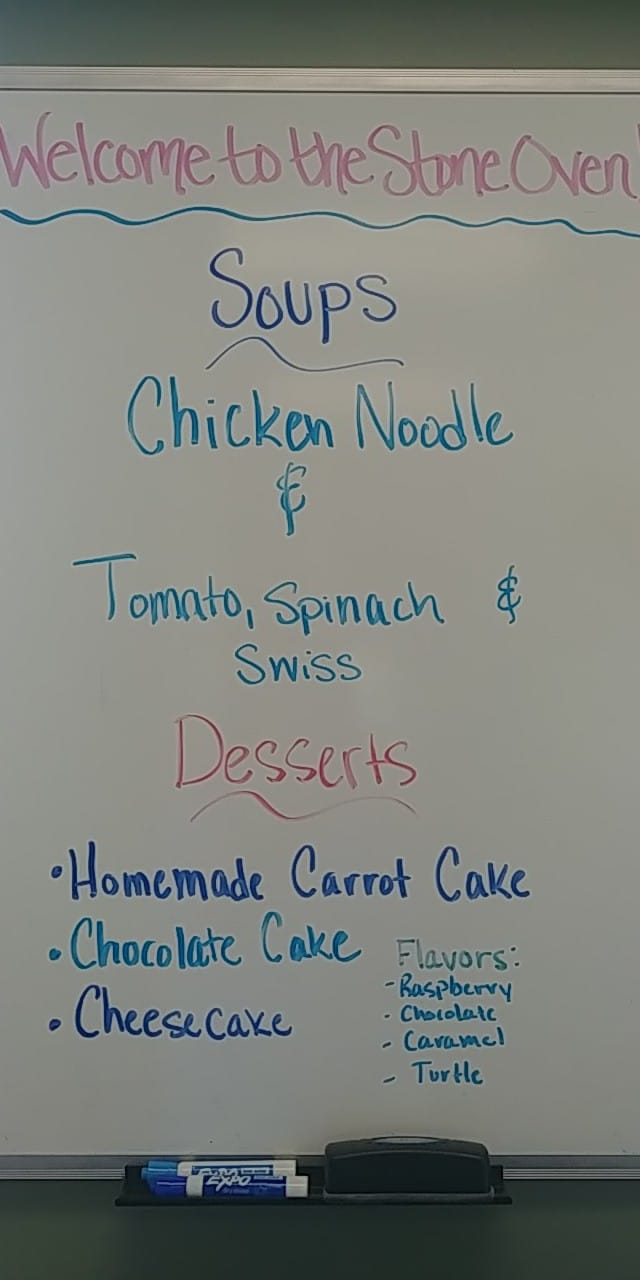 Welcome to the Stone Oven!
Soups
Chicken Noodle
&
Tomato, Spinach &
Swiss
Desserts
• Homemade Carrot Cake
• Chocolate Cake
• Cheesecake
Flavors:
- Raspberry
- Chocolate
- Caramel
- Turtle
EXPO